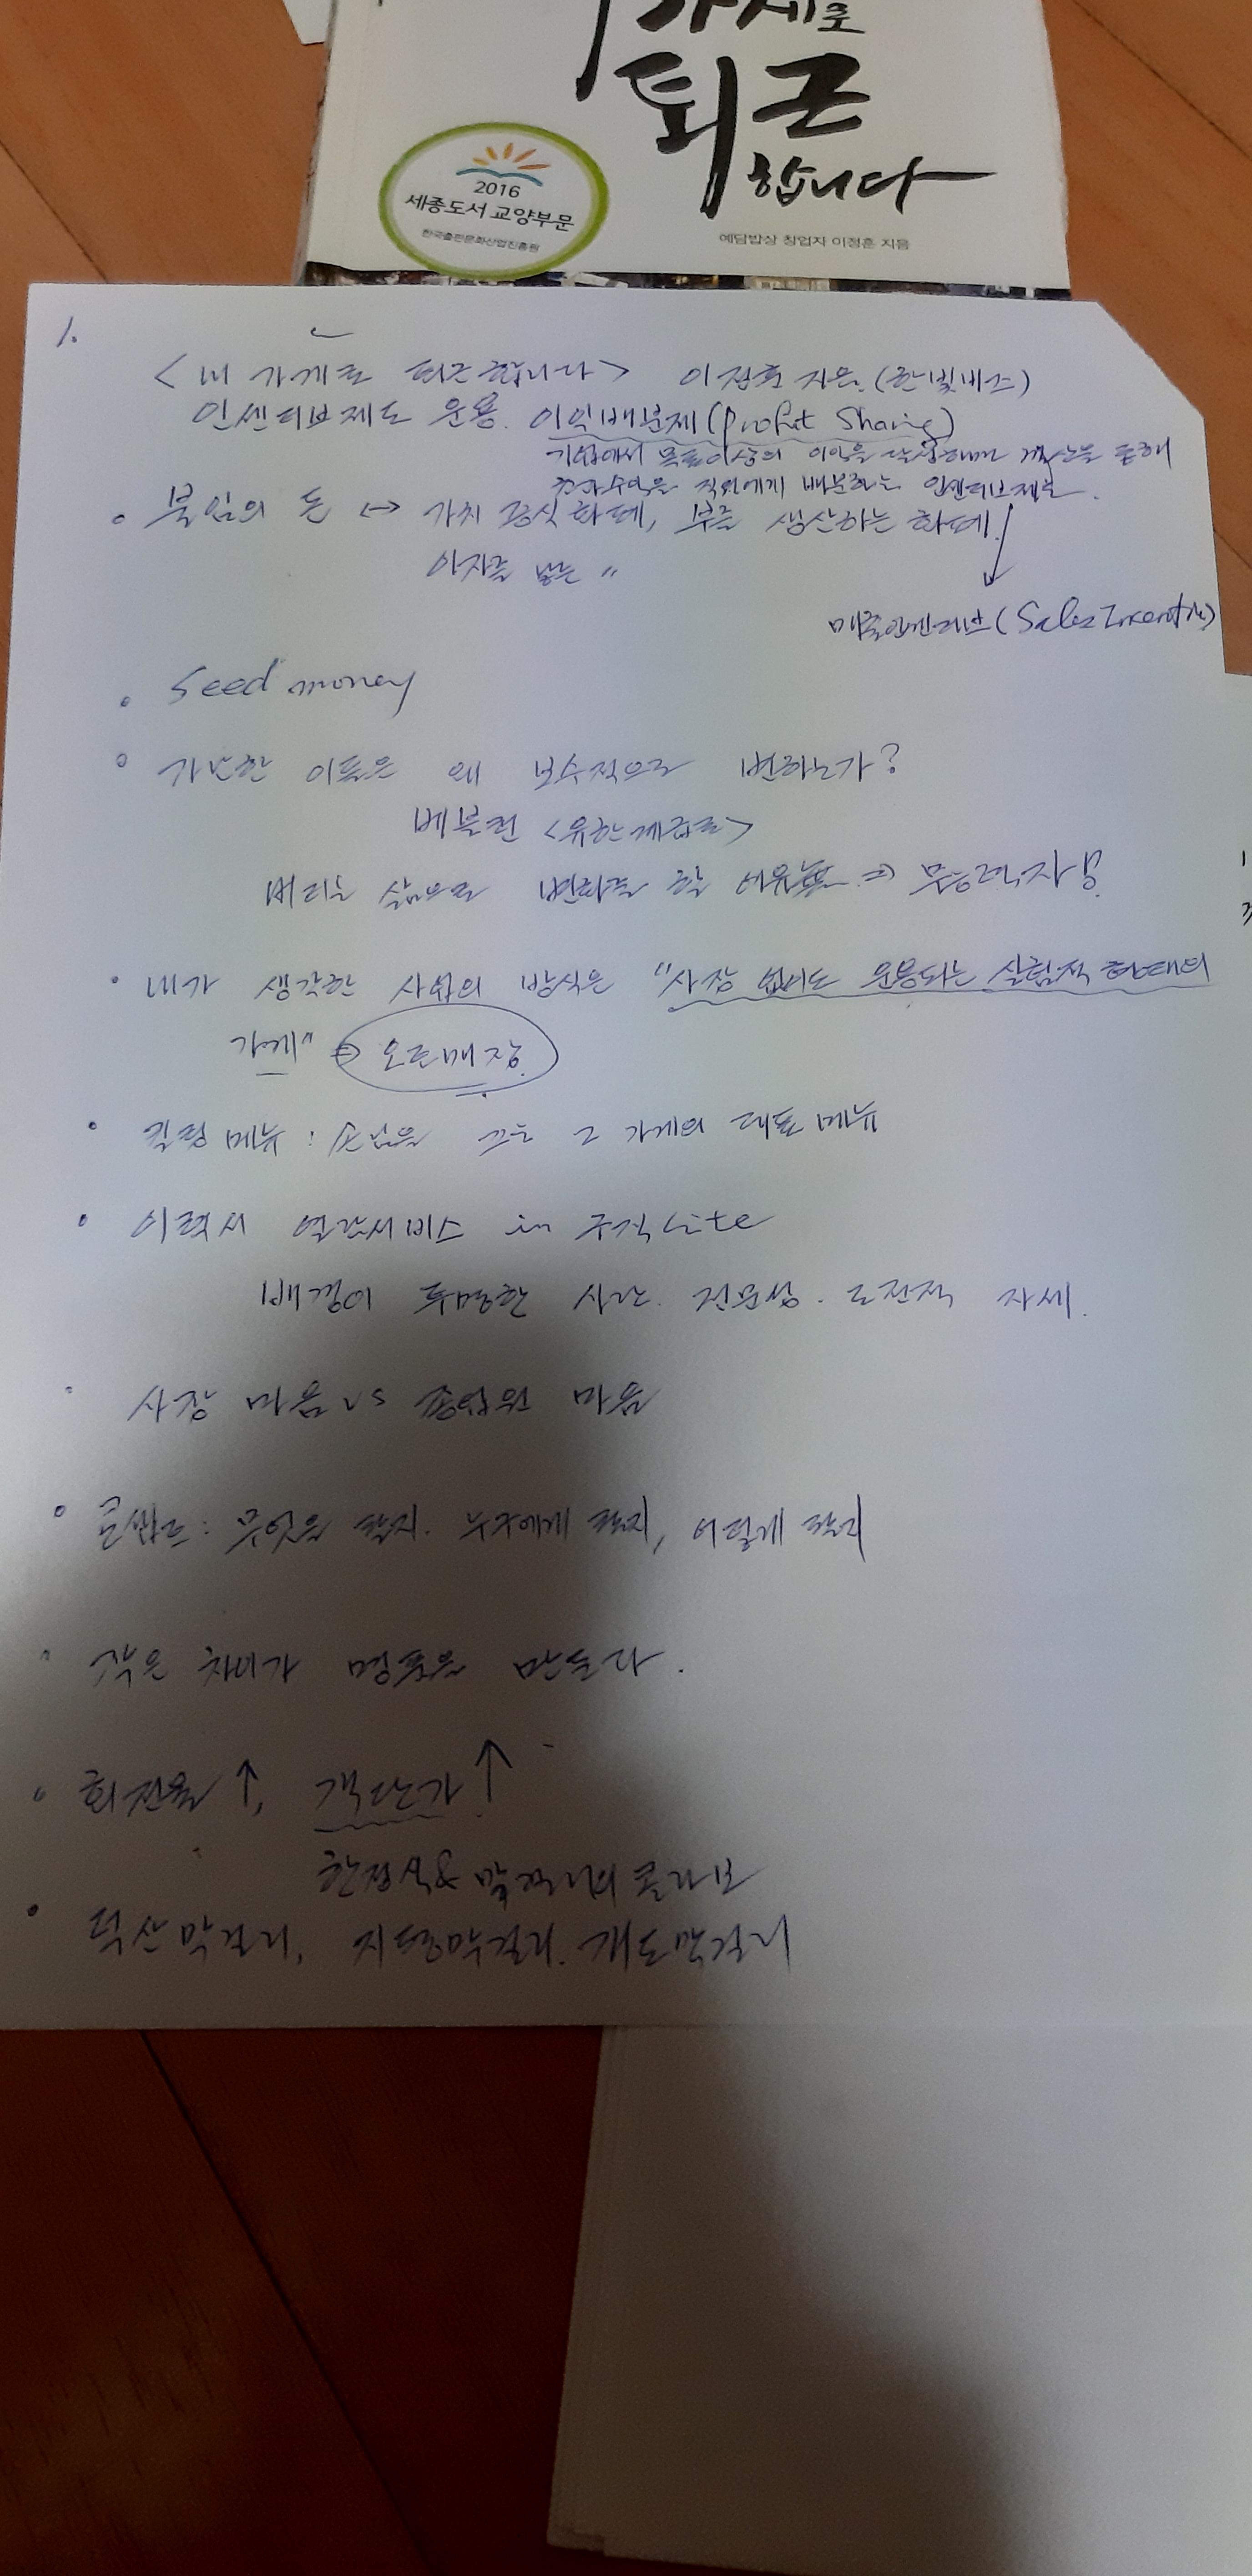 가게로
퇴근
합니다
2016
세종도서 교양부문
한국출판문화산업진흥원
예담밥상 창업자 이정훈 지음
1.
<내 가게로 퇴근합니다> 이정훈 지음. (한빛비즈)
인센티브제도 운용. 이익배분제(Profit Sharing)
기업에서 목표이상의 이익을 달성하면 계산을 통해
초과수익을 직원에게 배분하는 인센티브제도.
불임의 돈 ↔ 가치 증식 화폐, 부를 생산하는 화폐.
이자를 낳는 "
매출인센티브(Sales Incentive)
Seed money
가난한 이들은 왜 보수적으로 변하는가?
베블런 <유한계급론>
버티는 삶으로 변화를 할 여유無 ⇒ 무능력자!
내가 생각한 사업의 방식은 "사장 없이도 운용되는 실험적 형태의
가게" ⇒ 오토매장
킬링 메뉴 : 손님을 끄는 그 가게의 대표 메뉴
이력서 열람서비스 in 구직 Site
배경이 투명한 사람. 전문성. 도전적 자세.
사장 마음 vs 종업원 마음
콘셉트 : 무엇을 팔지. 누구에게 팔지, 어떻게 팔지
작은 차이가 명품을 만든다.
회전율 ↑, 객단가 ↑
한정식 & 막걸리의 콜라보
덕산막걸리, 지평막걸리. 개도막걸리